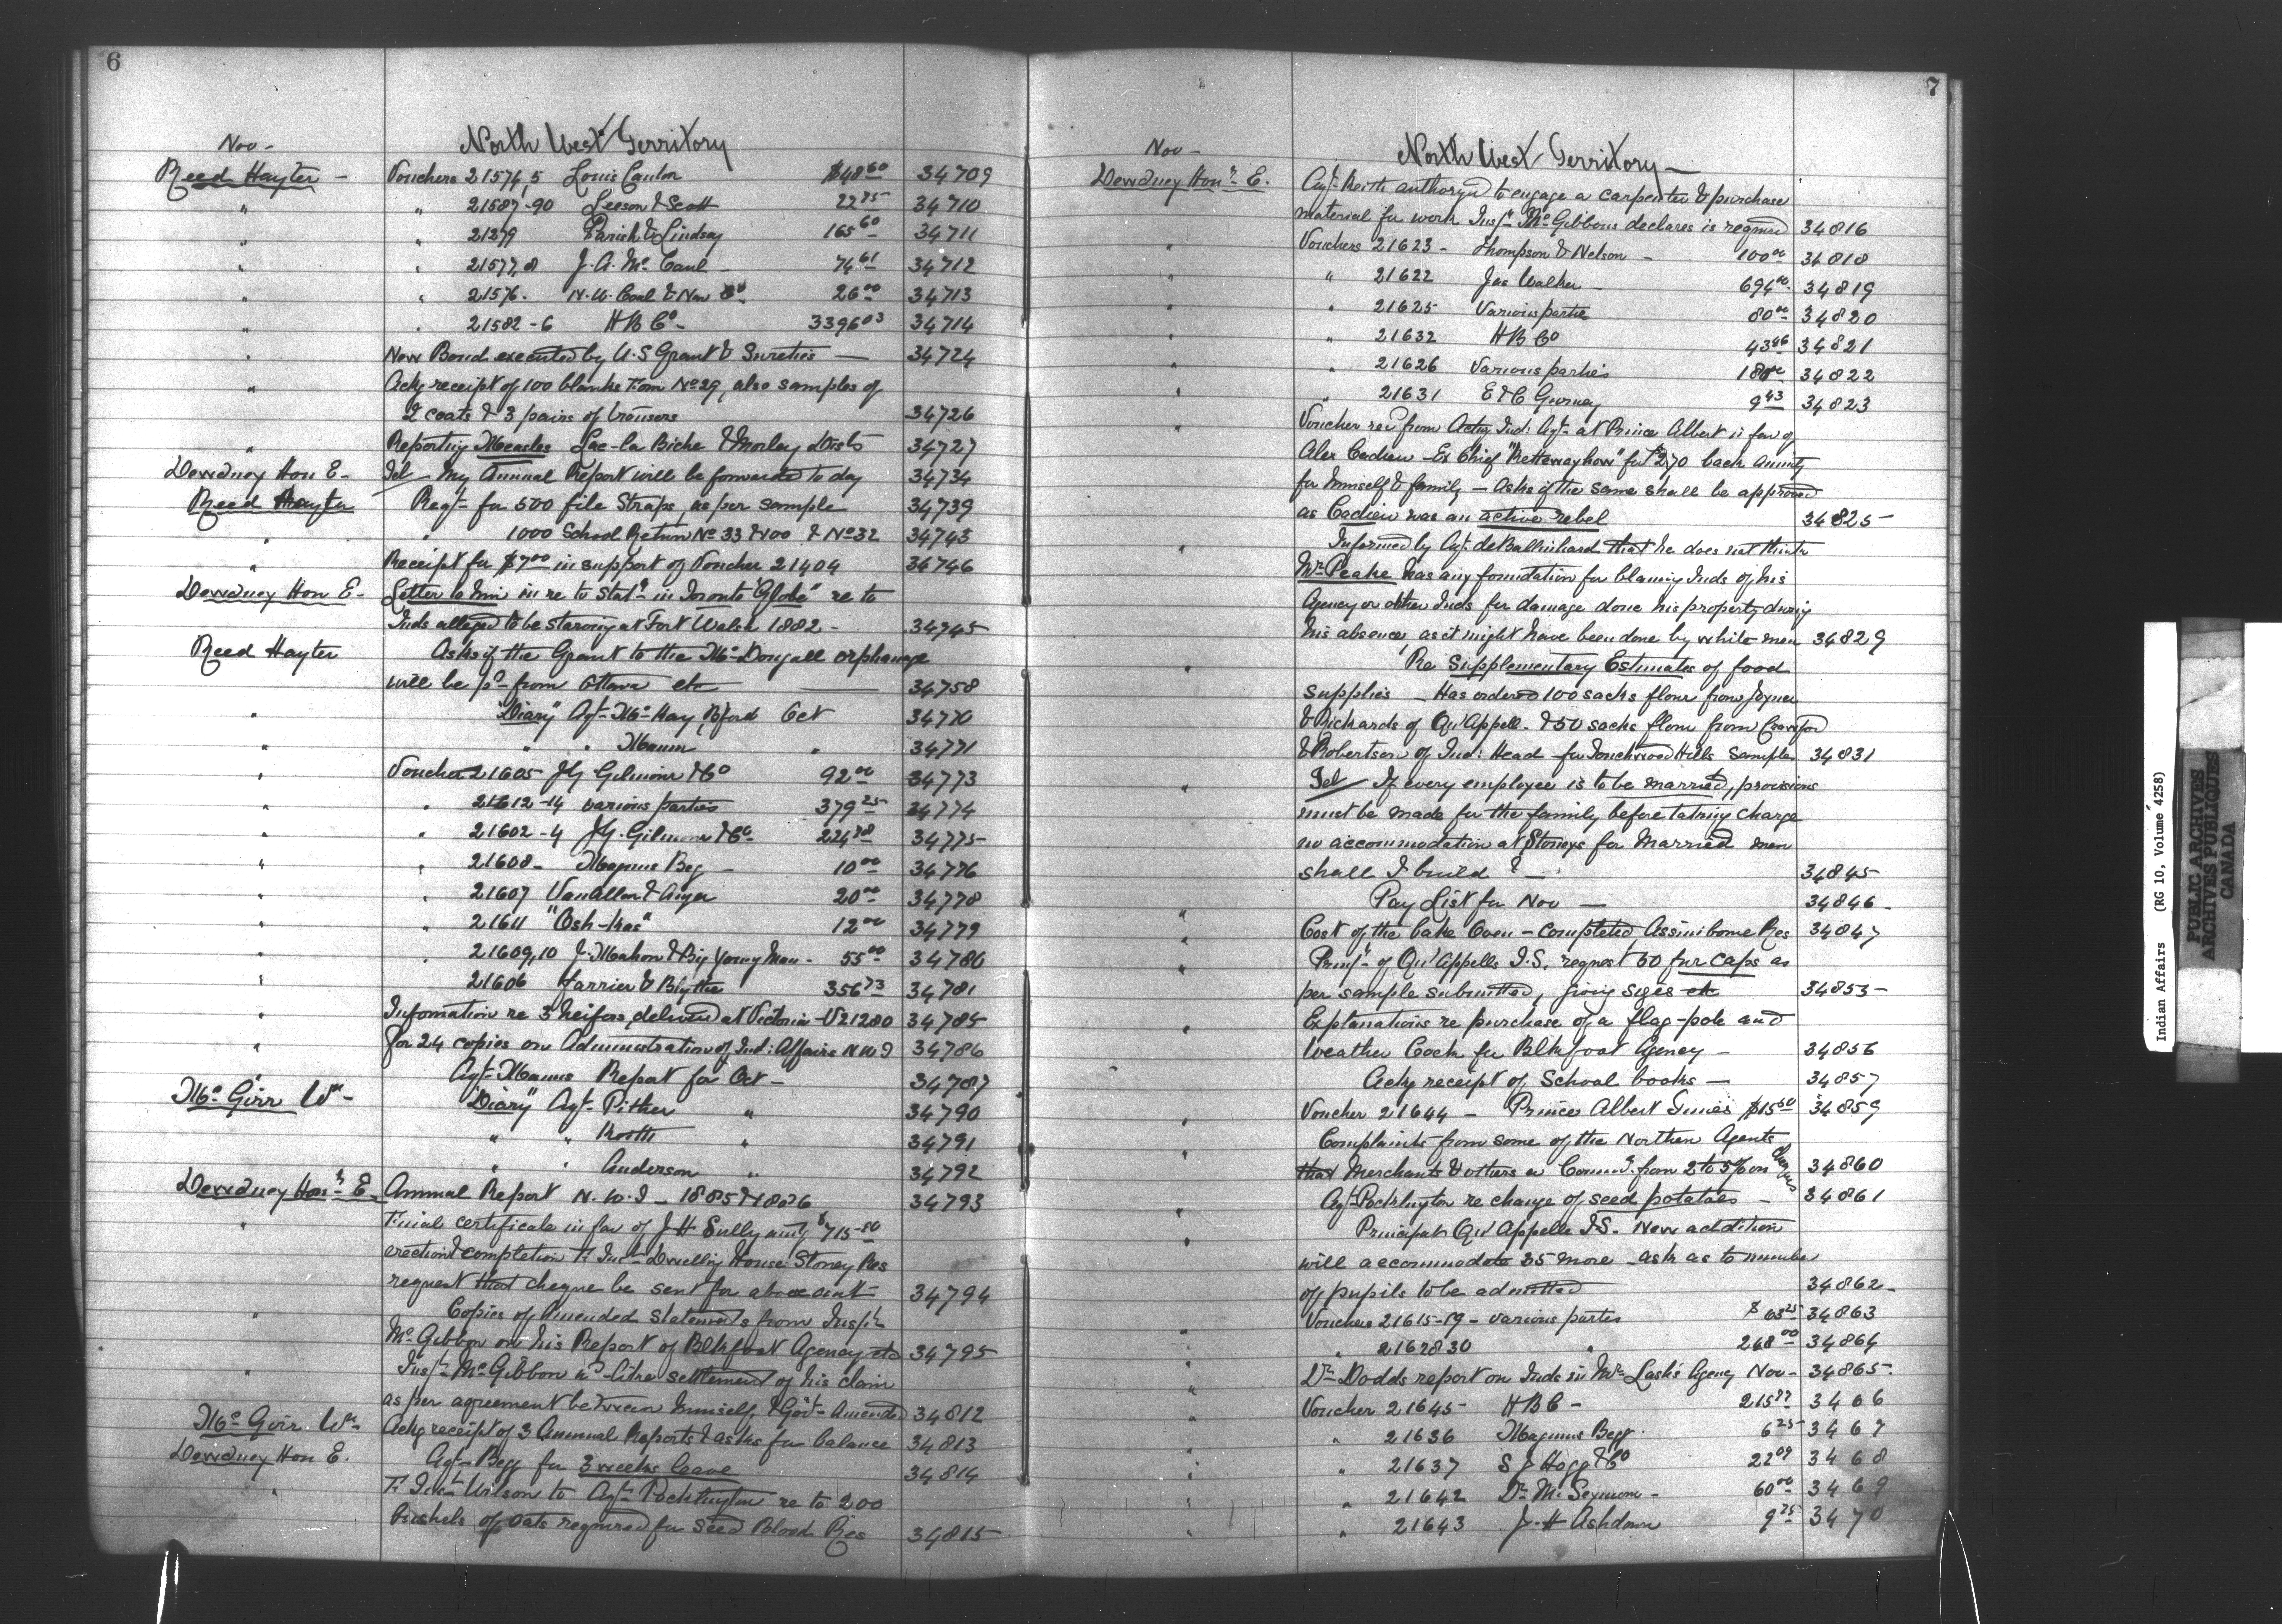 6
Nov -
North West Territory
Reed Hayter - Vouchers 21574,5 Louis $48 60 34709
" " 21587-90 Leeson & Scott 22 75 34710
" " 21279 Parish & Lindsay 165 60 34711
" " 21577,8 J. A. Mc Caul - 74 61 34712
" " 21576. N. W. Coal & Nav Co 26 00 34713
" " 21582-6 H B Co - 3396 03 34714
" New Bond executed by U. S Grant & Sureties — 34724
" Ackg receipt of 100 blanks Form No 29, also samples of
2 coats & 3 pairs of trousers 34726
" Reporting Measles Lac-la Biche & Morley dists 34727
Dewdney Hon E - Tel - My Annual Report will be forwarded to day 34734
Reed Hayter Reqt- for 500 file Straps, as per sample 34739
" " 1000 School Return No 33 & 100 & No 32 34743
" Receipt for $7 00 in support of Voucher 21404 34746
Dewdney Hon E - Letter to him in re to Statt in Toronto "Globe" re to
Inds alleged to be starving at Fort Walsh 1882 - 34745
Reed Hayter Asks if the Grant to the Mc Dougall orphanage
will be pd from Ottawa etc — 34758
" "Diary" Agt- Mc Kay, Bford Oct 34770
" " " Mann " 34771
" Voucher 21605 J Y Gilmour & Co 92 00 34773
" " 21612-14 various parties 379 25 34774
" " 21602-4 J Y. Gilmour & Co 224 34775
" " 21608 - Magnus Beg - 10 00 34776
" " 21607 VanAllen & 20 00 34778
" " 21611 "Osh-kas" 12 00 34779
" " 21609,10 J. Mahon & Big Young Man - 55 00 34780
" 21606 Farrier & Blythe 356 73 34781
" Information re 3 heifers delivered at Victoria - V21280 34785
" for 24 copies on Administration of Ind: Affairs N W T 34786
" Agt- Manns Report for Oct - 34787
Mc Girr Wm - "Diary" Agt- Pither " 34790
" " Keith " 34791
" " Anderson " 34792
Dewdney Honr E. Annual Report N. W. T - 1885 & 1886 34793
" Final certificate in fav of J H Sully amtg $715-50
erection & completion F. Inst- Dwelling House Stoney Res
request that cheque be sent for above amt 34794
" Copies of Amended Statements from Inspr
Mc Gibbon on his Report of Blkfoot Agency etc 34795
" Inspr Mc Gibbon settlement of his claim
as per agreement between himself & Govt - Amended 34812
Mc Girr Wm - Ackg receipt of 3 Annual Reports & asks for balance 34813
Dewdney Hon E. Agt- Begg for 3 weeks leave 34814
" F. Inst Wilson to Agt- Pocklington re to 200
bushels of oats required for seed Blood Res 34815
7
Nov -
North West Territory -
Dewdney Honr E. Agt- Keith authorized to engage a carpenter & purchase
material for work Inspr Mc Gibbons declares is required 34816
" Vouchers 21623 - Thompson & Nelson - 100 00 34818
" " 21622 Jas Walker - 694 00 34819
" " 21625 Various parties 80 00 34820
" " 21632 H B Co 43 46 34821
" " 21626 Various parties 18 34822
" " 21631 E & C Gurney 9 43 34823
" Voucher recd from Actg Ind: Agt- at Prince Albert in fav of
Alex Cadieu - Ex Chief for $270 back Annuity
for himself & family - asks if the same shall be approved
as Cadieu was an active rebel 34825
" Informed by Agt. deBalinhard that he does not think
Mr. Peake has any foundation for blaming Inds of his
Agency or other Inds for damage done his property during
his absence, as it might have been done by white men 34829
" Re Supplementary Estimates of food
supplies - Has ordered 100 sacks flour from Joyner
& Richards of Qu'Appell. & 50 sacks flour from Crawford
& Robertson of Ind: Head - for Touchwood Hills Samples 34831
" Tel - If every employee is to be married, provisions
must be made for the family before taking charge
no accommodation at Stoneys for Married men
shall I build? — 34845
" Pay List for Nov — 34846
" Cost of the bake Oven - completed Assiniboine Res 34847
" Prinpl- of Qu'Appelle I.S. request 50 fur caps as
per sample submitted, giving sizes etc 34853
" Explanations re purchase of a flag-pole and
Weather Cock for Blkfoot Agency - 34856
Ackg receipt of School books — 34857
" Voucher 21644 - Prince Albert Times $15 50 34859
" Complaints from some of the Northern Agents
that Merchants & others from 2 to 5% on cheques 34860
" Agt- Pocklington re change of seed potatoes - 34861
" Principal Qu'Appelle I S. New addition
will accommodate 35 more - asks as to number
of pupils to be admitted 34862 -
" Vouchers 21615-19 - various parties $ 63 25 34863
" " 2162830 " 268 00 34864
" Dr Dodds report on Inds in Mr Lash's Agency Nov - 34865.
" Voucher 21645 - H B C - 215 77 3466
" " 21636 Magnus Begg. 6 25 3467
" " 21637 S J Hogg & Co 22 09 3468
" " 21642 Dr M. Seymour - 60 00 3469
" " 21643 J. H Ashdown 9 25 3470
Indian Affairs (RG 10, Volume 4258)
PUBLIC ARCHIVES
ARCHIVES PUBLIQUES
CANADA